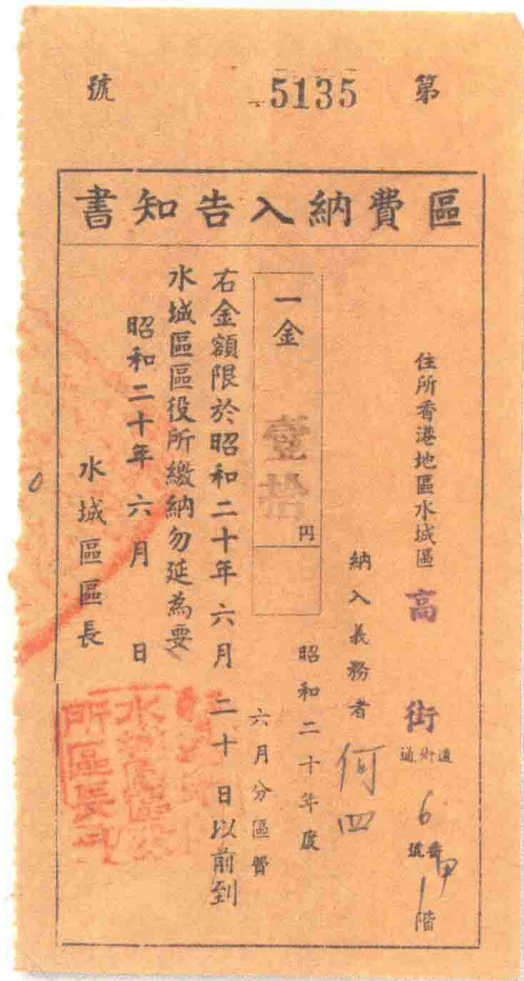 第 5135 號
區費納入告知書
住所香港地區水城區 高 街 通街道 6 號番 甲 1 階
納入義務者 何四
昭和二十年度
六月分區費
一金 壹拾 円
右金額限於昭和二十年六月二十日以前到
水城區區役所繳納勿延為要
昭和二十年六月 日
水城區區長